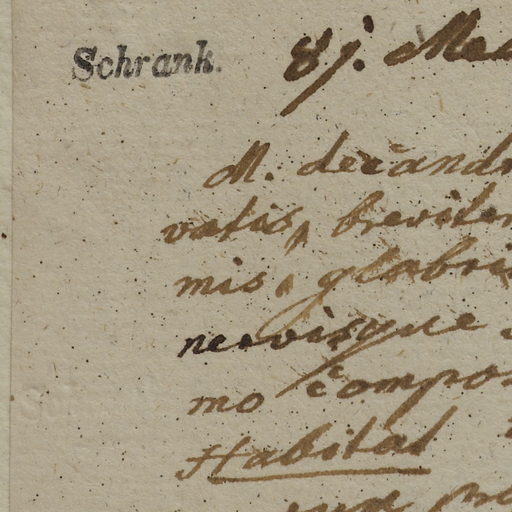 Schrank. 87. Me
M. decandr
vatis, breviter
mis, glabri
nervisque
mo compo
Habitat